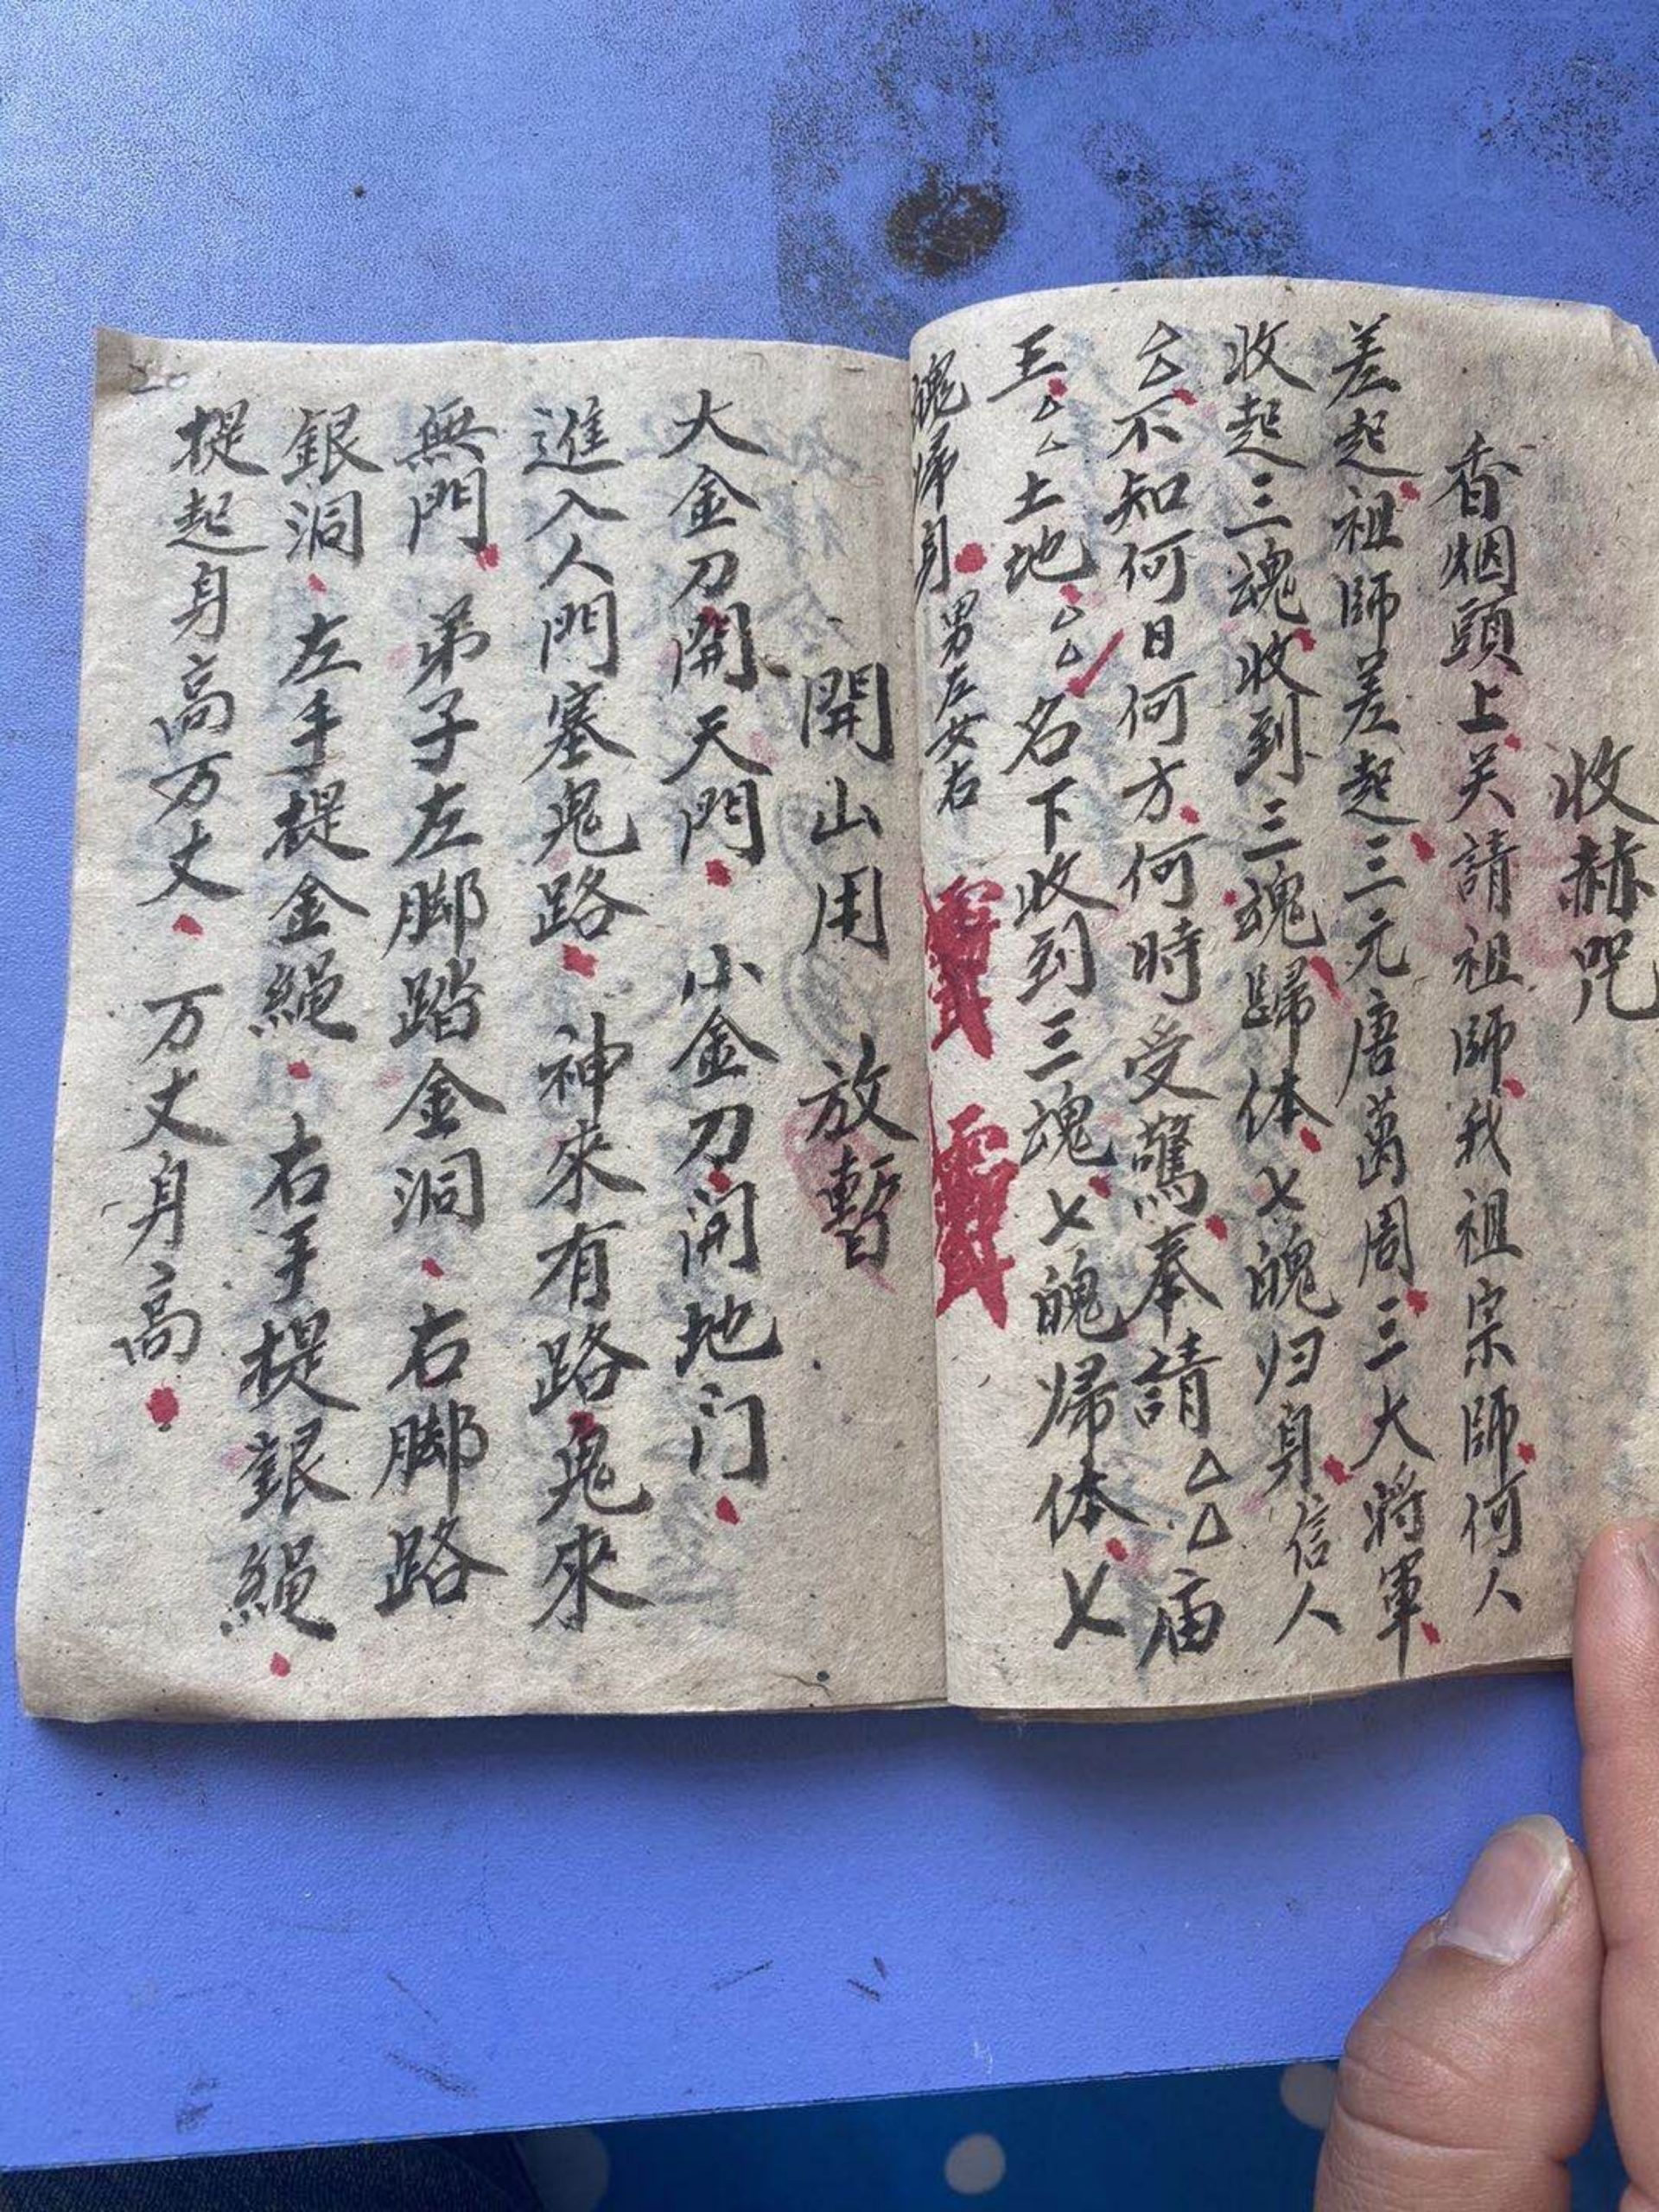 收赫咒
香烟頭上关請祖師我祖宗師何人
差起祖師差起三元唐葛周三大將軍
收起三魂收到三魂歸体七魄归身信人
△△不知何日何方何時受驚奉請△△庙
王△△土地△△名下收到三魂七魄歸体七
魄歸身 男左女右
開山用 放暫
大金刀開天門 小金刀開地门
進入人門塞鬼路 神來有路鬼來
無門 弟子左脚踏金洞 右脚路
銀洞 左手提金繩 右手提銀繩
提起身高万丈 万丈身高